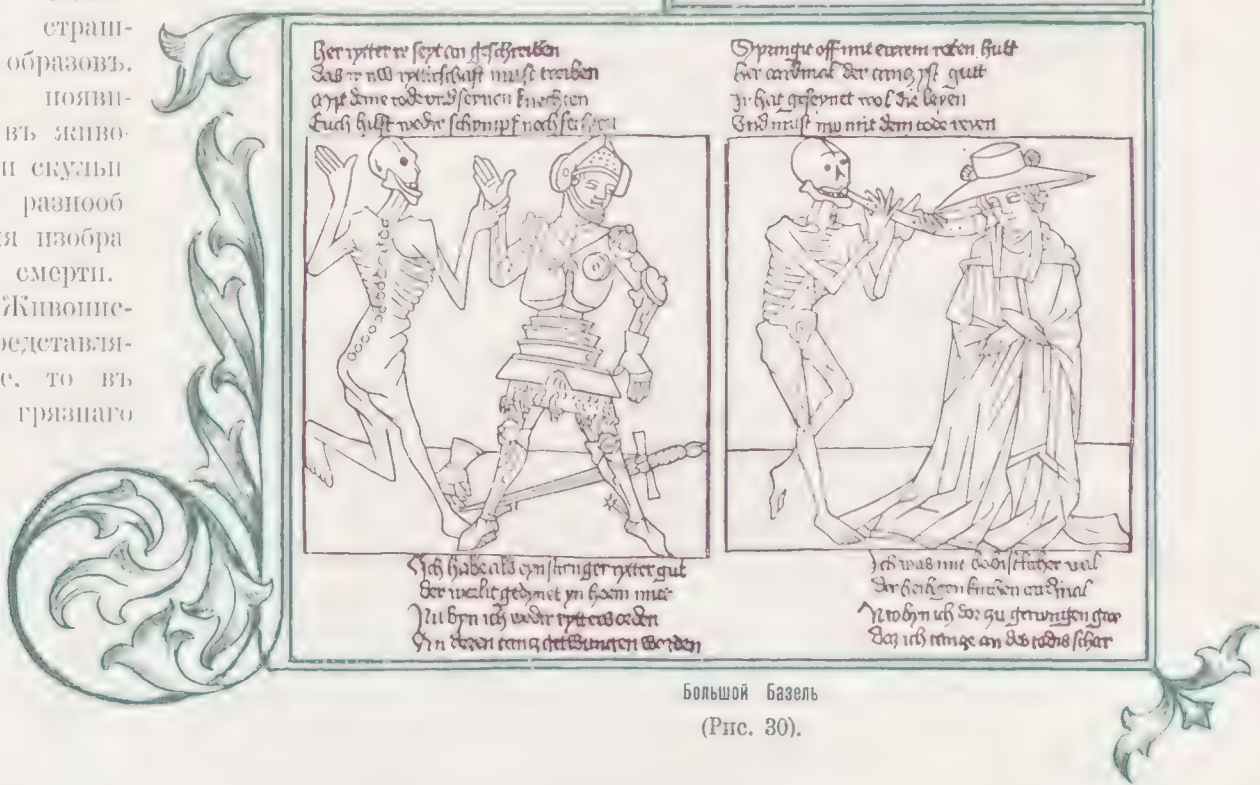 страш-
образовъ.
появи-
въ живо-
и скульп
разнооб
я изобра
смерти.
Живопис-
редставля-
е, то въ
грязнаго
Her rytter ir seyt an geschreiben
Das ir ritterschaft must treiben
dem tode und seynen knechten
Euch hilft weder schympf noch
Sprungit off mit eurem roten hutt
Her cardinal der tancz yst gutt
Ir hat geseynet wol die leyen
Und must nw mit dem tode reyen
Ich habe als eyn strenger rytter gut
Der werlit gedynet yn hoem mut
Nu byn ich wedir rytters orden
An desen tancz getwungen worden
Ich was mit
Der heiligen kirchen cardinal
Nw byn ich dor zu getwungen gar
Das ich tancze an des todis schar
Большой Базель
(Рис. 30).